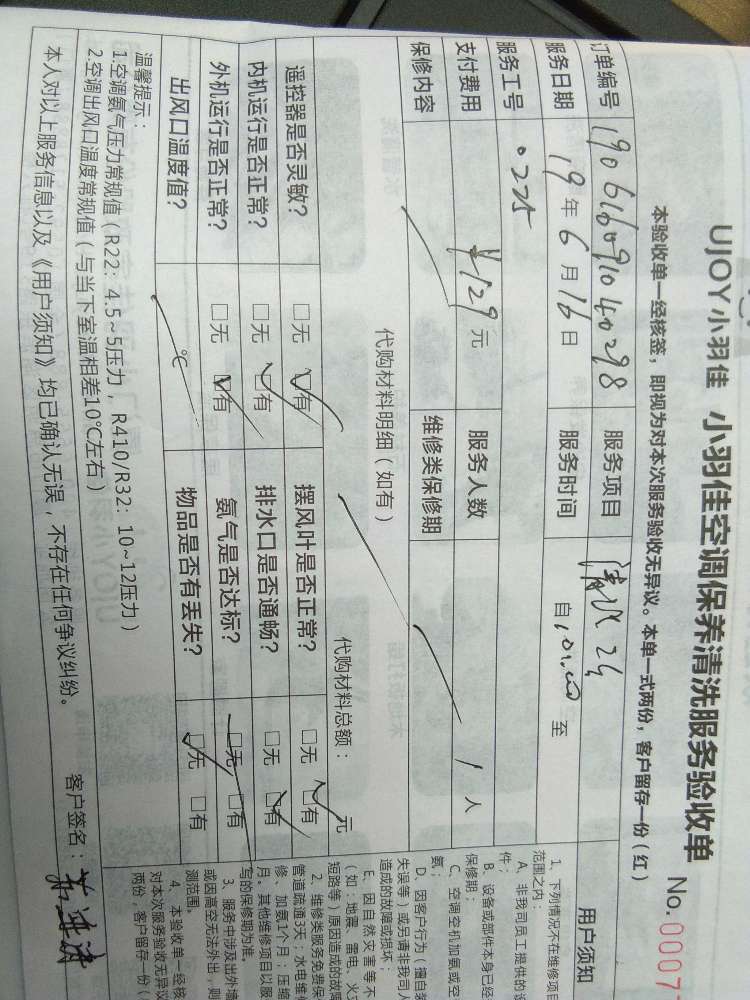 UJOY小羽佳 小羽佳空调保养清洗服务验收单 No.0007
本验收单一经核签，即视为对本次服务验收无异议。本单一式两份，客户留存一份（红）
订单编号 服务项目 清洗2台
服务日期 19年6月16日 服务时间 自 至
服务工号 0.225
支付费用 ¥129元 服务人数 1人
保修内容 维修类保修期
代购材料明细（如有） 代购材料总额： 元
遥控器是否灵敏？ □无 □有 摆风叶是否正常？ □无 □有
内机运行是否正常？ □无 □有 排水口是否通畅？ □无 □有
外机运行是否正常？ □无 □有 氨气是否达标？ □无 □有
出风口温度值？ ℃ 物品是否有丢失？ □无 □有
温馨提示：
1.空调氨气压力常规值（R22：4.5~5压力，R410/R32：10~12压力）
2.空调出风口温度常规值（与当下室温相差10℃左右）
本人对以上服务信息以及《用户须知》均已确认无误，不存在任何争议纠纷。 客户签名：
用户须知
1、下列情况不在维修项目
范围之内：
A、非我司员工提供的
件；
B、设备或部件本身已经
保修期；
C、空调空机加氨或空
氨；
D、因客户行为（擅自
失误等）或另请非我司人
造成的故障或损坏；
E、因自然灾害等不
（如：地震、雷电、火
短路等）原因造成的故障
2、维修类服务免费保
管道疏通3天；水电维
修、加氨1个月；压缩
月。其他维修项目以服
写的保修期为准。
3、服务中涉及出外墙
或因高空无法外出，则
测范围。
4、本验收单一经核
对本次服务验收无异议
两份，客户留存一份（